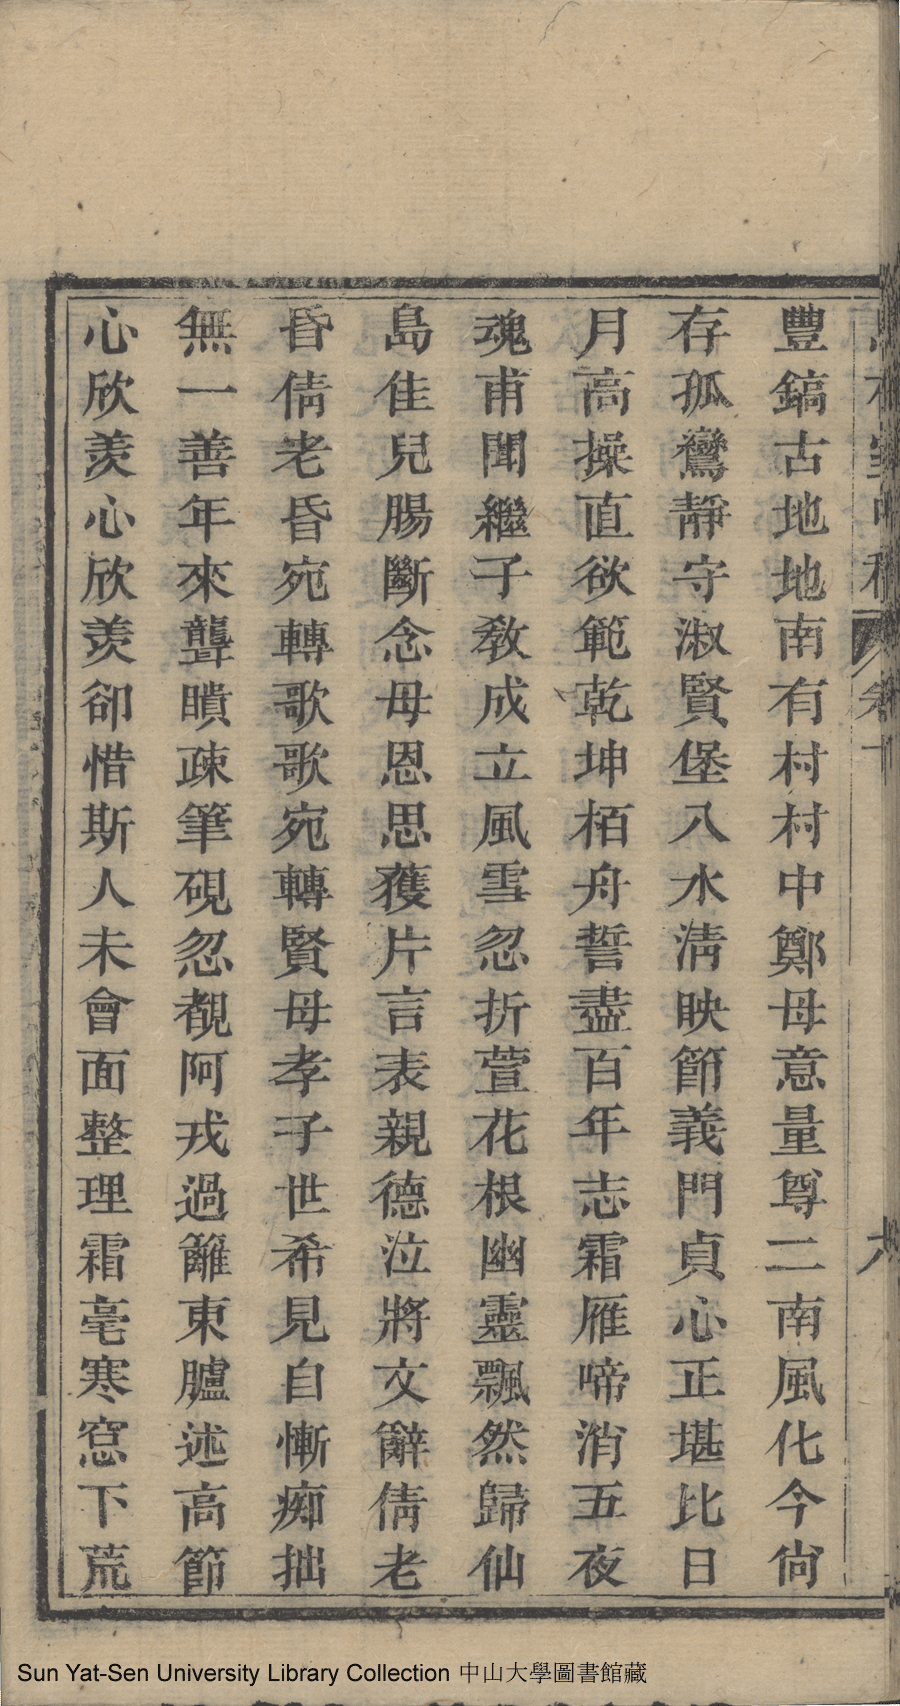 豐鎬古地地南有村村中鄭母意量尊二南風化今尙
存孤鸞靜守淑賢堡八水淸映節義門貞心正堪比日
月高操直欲範乾坤栢舟誓盡百年志霜雁啼消五夜
魂甫聞繼子敎成立風雪忽折萱花根幽靈飄然歸仙
島佳兒腸斷念母恩思獲片言表親德泣將文辭倩老
昏倩老昏宛轉歌歌宛轉賢母孝子世希見自慚痴拙
無一善年來聾瞶疎筆硯忽覩阿戎過籬東臚述高節
心欣羨心欣羨卻惜斯人未會面整理霜毫寒窓下荒
Sun Yat-Sen University Library Collection 中山大學圖書館藏